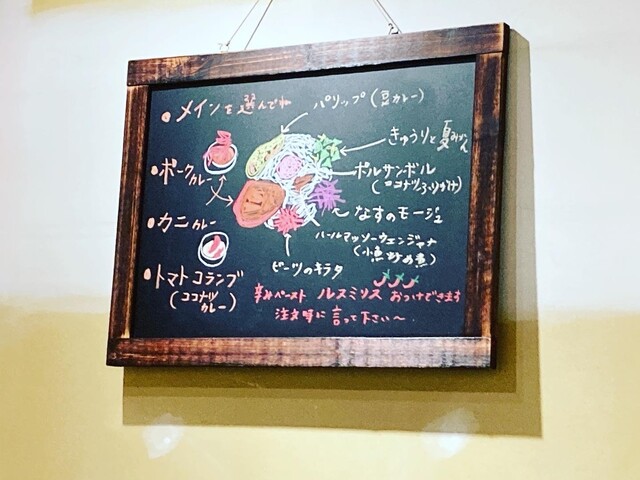 メインを選んでね
ポークカレー
カニカレー
トマトコランブ
(ココナツ
カレー)
パリップ(豆カレー)
きゅうりと夏みかん
ポルサンボル
(ココナツふりかけ)
なすのモージュ
ハールマッソーウェンジャナ
(小魚炒め煮)
ビーツのキラタ
辛みペースト ルヌミリス おつけできます
注文時に言って下さい〜